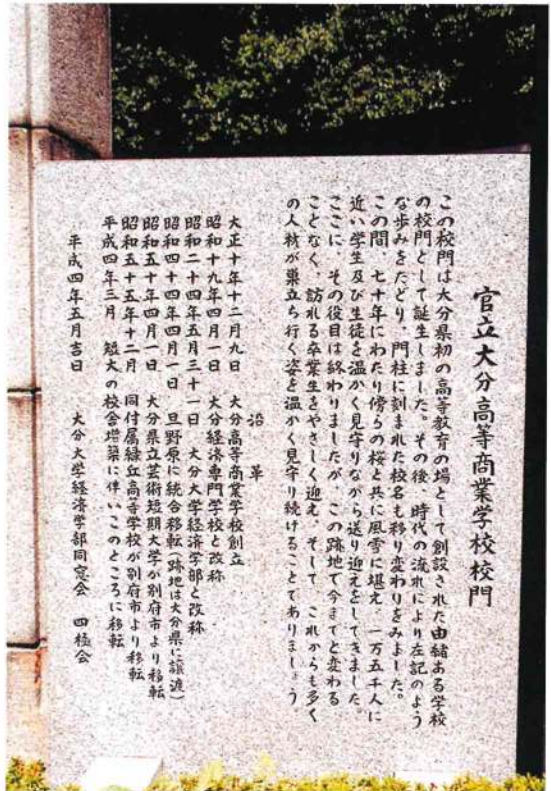 官立大分高等商業学校校門
この校門は大分県初の高等教育の場として創設された由緒ある学校
の校門として誕生しました。その後、時代の流れにより左記のよう
な歩みをたどり、門柱に刻まれた校名も移り変わりをみました。
この間、七十年にわたり傍らの桜と共に風雪に堪え、一万五千人に
近い学生及び生徒を温かく見守りながら送り迎えをしてきました。
ここに、その役目は終わりましたが、この跡地で今までと変わる
ことなく、訪れる卒業生をやさしく迎え、そして、これからも多く
の人材が巣立ち行く姿を温かく見守り続けることでありましょう
沿革
大正十年十二月九日 大分高等商業学校創立
昭和十九年四月一日 大分経済専門学校と改称
昭和二十四年五月三十一日 大分大学経済学部と改称
昭和四十四年四月一日 旦野原に統合移転(跡地は大分県に譲渡)
昭和五十年四月一日 大分県立芸術短期大学が別府市より移転
昭和五十五年十二月 同付属緑丘高等学校が別府市より移転
平成四年三月 短大の校舎増築に伴いこのところに移転
平成四年五月吉日 大分大学経済学部同窓会 四極会